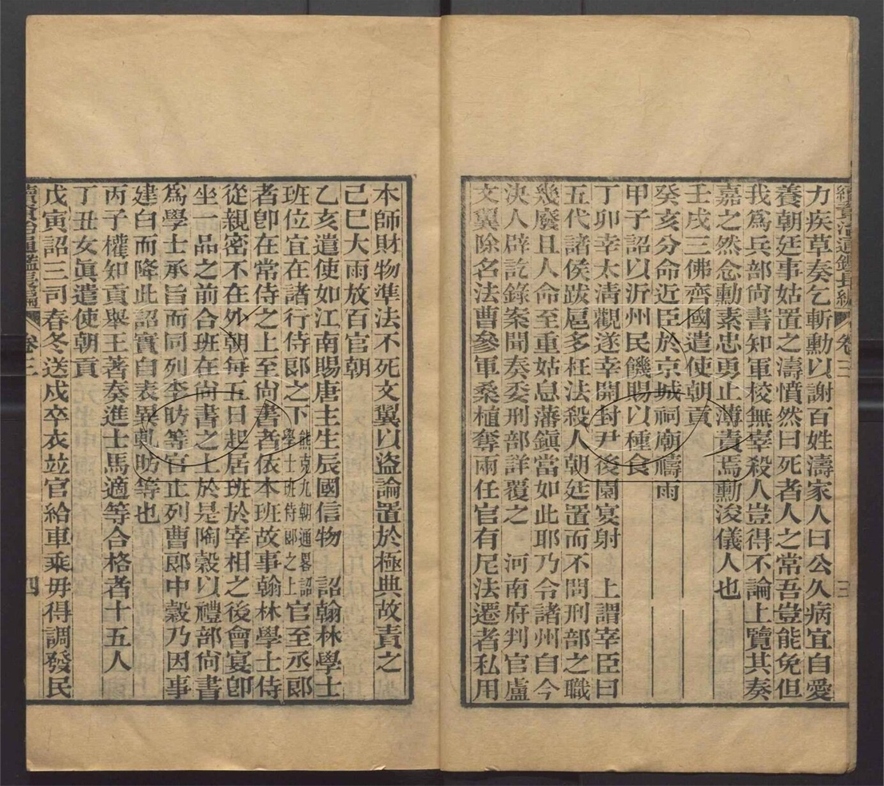 續資治通鑑長編 卷三 三
力疾草奏乞斬勳以謝百姓濤家人曰公久病宜自愛
養朝廷事姑置之濤憤然曰死者人之常吾豈能免但
我爲兵部尚書知軍校無辜殺人豈得不論上覽其奏
嘉之然念勳素忠勇止薄責焉勳浚儀人也
壬戌三佛齊國遣使朝貢
癸亥分命近臣於京城祠廟禱雨
甲子詔以沂州民饑賜以種食
丁卯幸太清觀遂幸開封尹後園宴射 上謂宰臣曰
五代諸侯跋扈多枉法殺人朝廷置而不問刑部之職
幾廢且人命至重姑息藩鎭當如此耶乃令諸州自今
決人辟訖錄案聞奏委刑部詳覆之 河南府判官盧
文翼除名法曹參軍桑植奪兩任官有尼法遷者私用
本師財物準法不死文翼以盜論置於極典故責之
己巳大雨放百官朝
乙亥遣使如江南賜唐主生辰國信物 詔翰林學士
班位宜在諸行侍郞之下熊克九朝通畧詔學士班侍郞之上官至丞郞
者卽在常侍之上至尚書者依本班故事翰林學士侍
從親密不在外朝每五日起居班於宰相之後會宴卽
坐一品之前合班在尚書之上於是陶穀以禮部尚書
爲學士承旨而同列李昉等官止列曹郞中穀乃因事
建白而降此詔實自表異軋昉等也
丙子權知貢舉王著奏進士馬適等合格者十五人
丁丑女眞遣使朝貢
戊寅詔三司春冬送戍卒衣並官給車乘毋得調發民
續資治通鑑長編 卷三 四